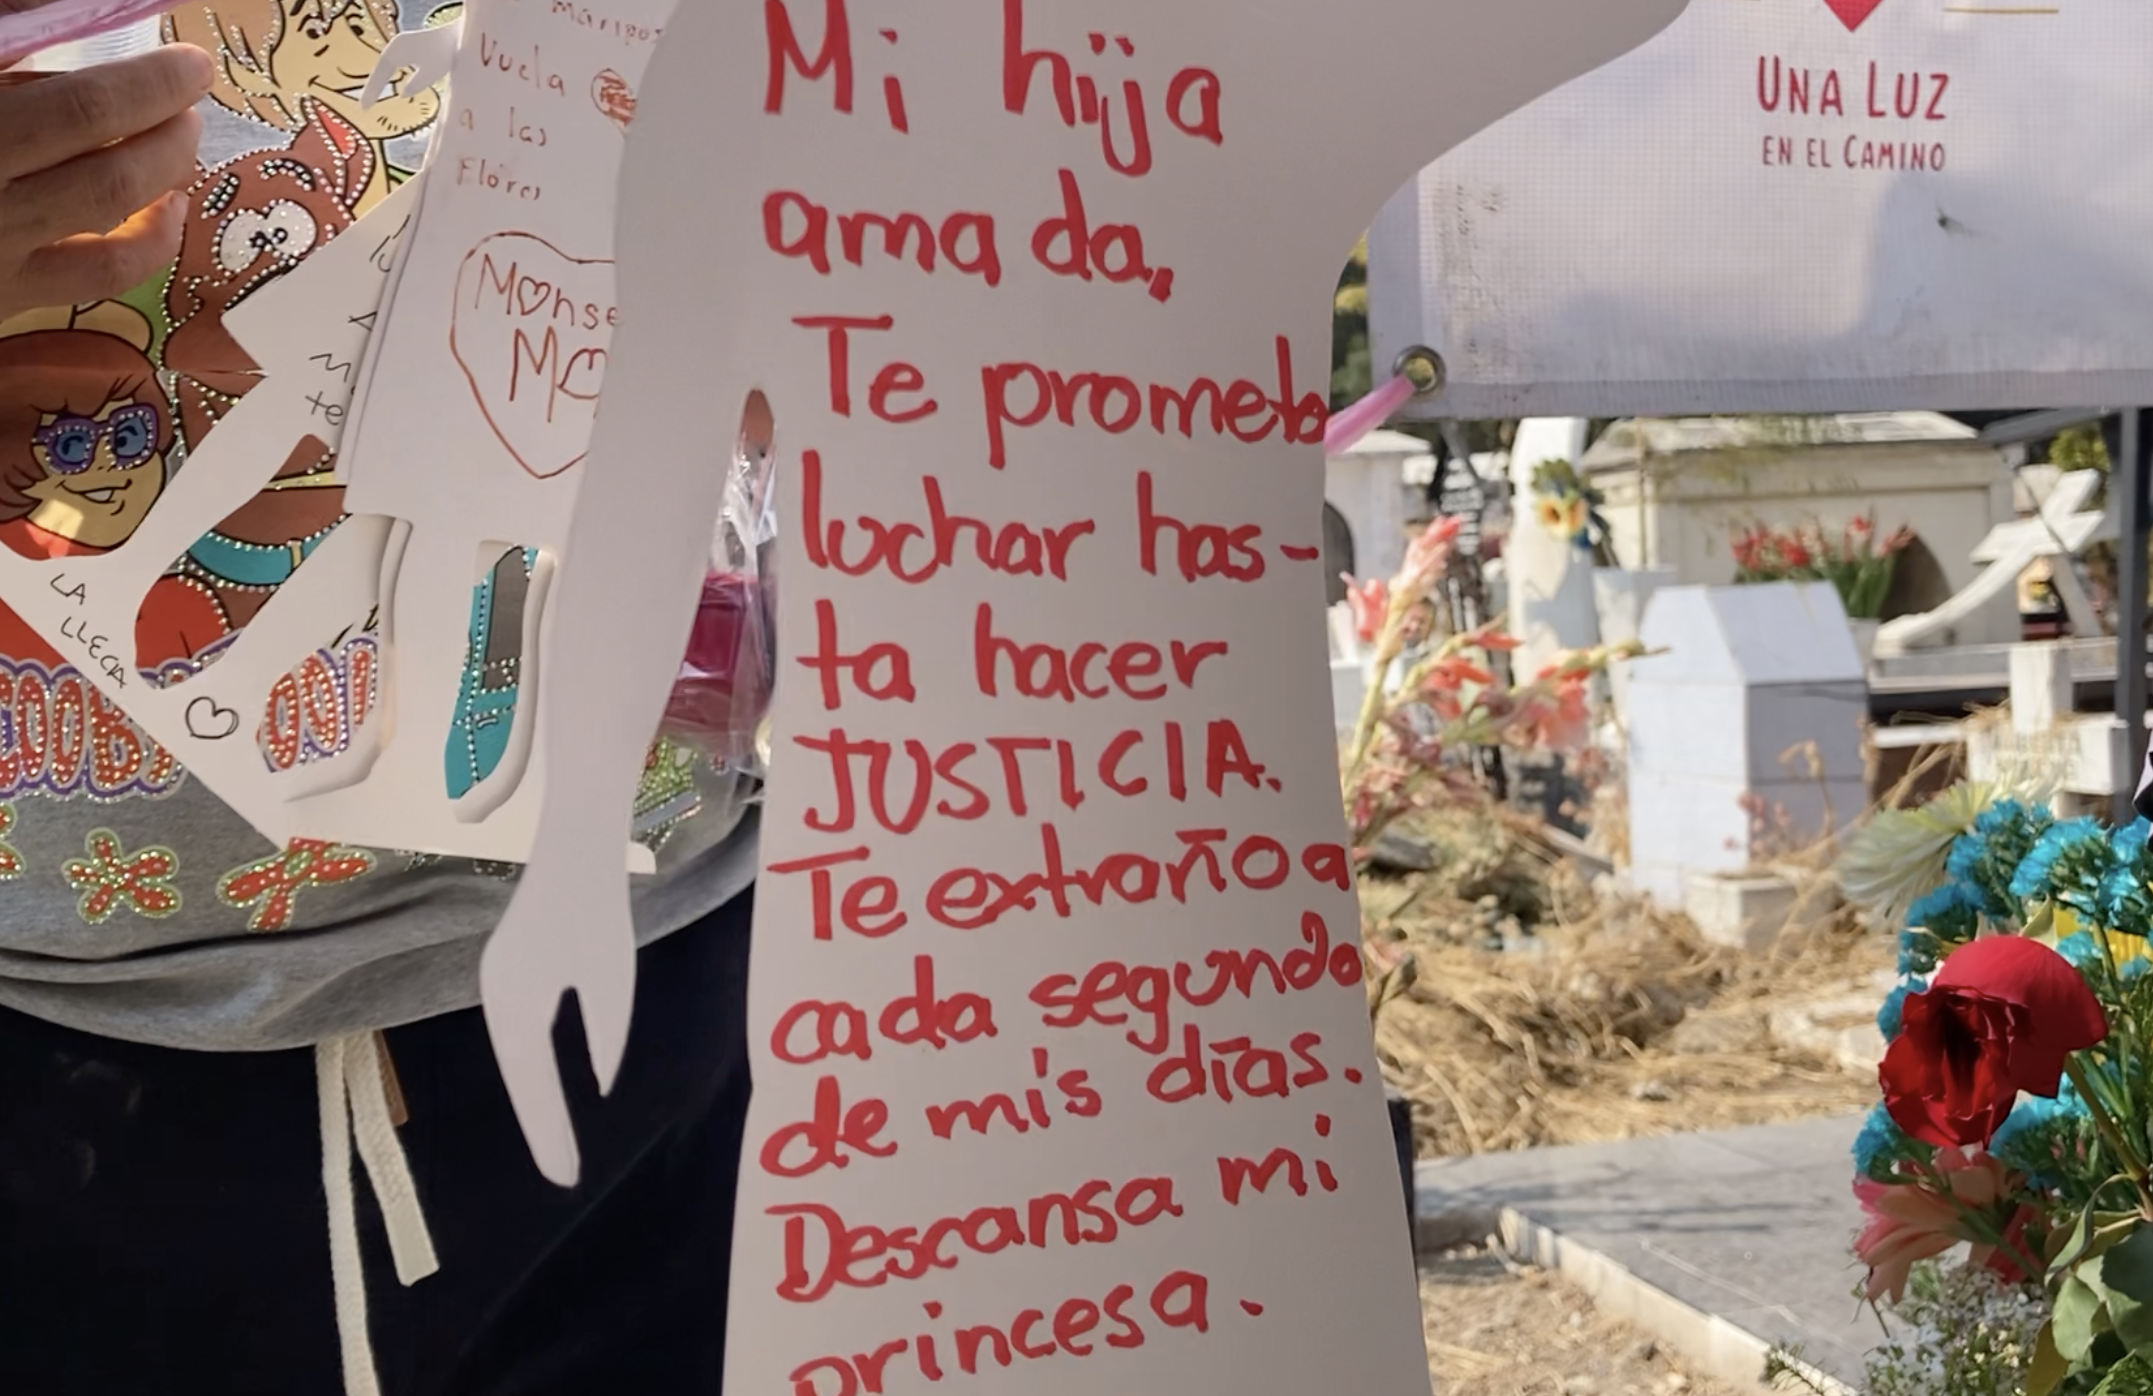 Mi hija
amada,
Te prometo
luchar has-
ta hacer
JUSTICIA.
Te extraño a
cada segundo
de mis días.
Descansa mi
princesa.
Vuela
a las
Flores
Monse
UNA LUZ
EN EL CAMINO
LA
LLECA